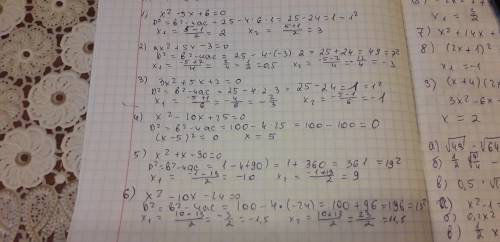 1) x² - 5x + 6 = 0
D² = b² - 4ac = 25 - 4·6·1 = 25 - 24 = 1 = 1²
x₁ = (5-1)/2 = 2 x₂ = (5+1)/2 = 3
2) 2x² + 5x - 3 = 0
D² = b² - 4ac = 25 - 4·(-3)·2 = 25 + 24 = 49 = 7²
x₁ = (-5+7)/4 = 2/4 = 1/2 = 0,5 x₂ = (-5-7)/4 = -12/4 = -3
3) 3x² + 5x + 2 = 0
D² = b² - 4ac = 25 - 4·2·3 = 25 - 24 = 1 = 1²
x₁ = (-5+1)/6 = -4/6 = -2/3 x₂ = (-5-1)/6 = -1
4) x² - 10x + 25 = 0
D² = b² - 4ac = 100 - 4·25 = 100 - 100 = 0
(x-5)² = 0 x = 5
5) x² + x - 90 = 0
D² = b² - 4ac = 1 - 4·(-90) = 1 + 360 = 361 = 19²
x₁ = (-1-19)/2 = -10 x₂ = (-1+19)/2 = 9
6) x² - 10x - 24 = 0
D² = b² - 4ac = 100 - 4·(-24) = 100 + 96 = 196 = 13²
x₁ = (10-13)/2 = -3/2 = -1,5 x₂ = (10+13)/2 = 23/2 = 11,5
7) x² + 14x
8) (2x + 1)²
x₁ = -1
9) (x+4)(2x
3x² - 6x
x = 2
а) √49 - √64
б)
в) 0,5 ·
а) x² -
б) 0,1x²
в)